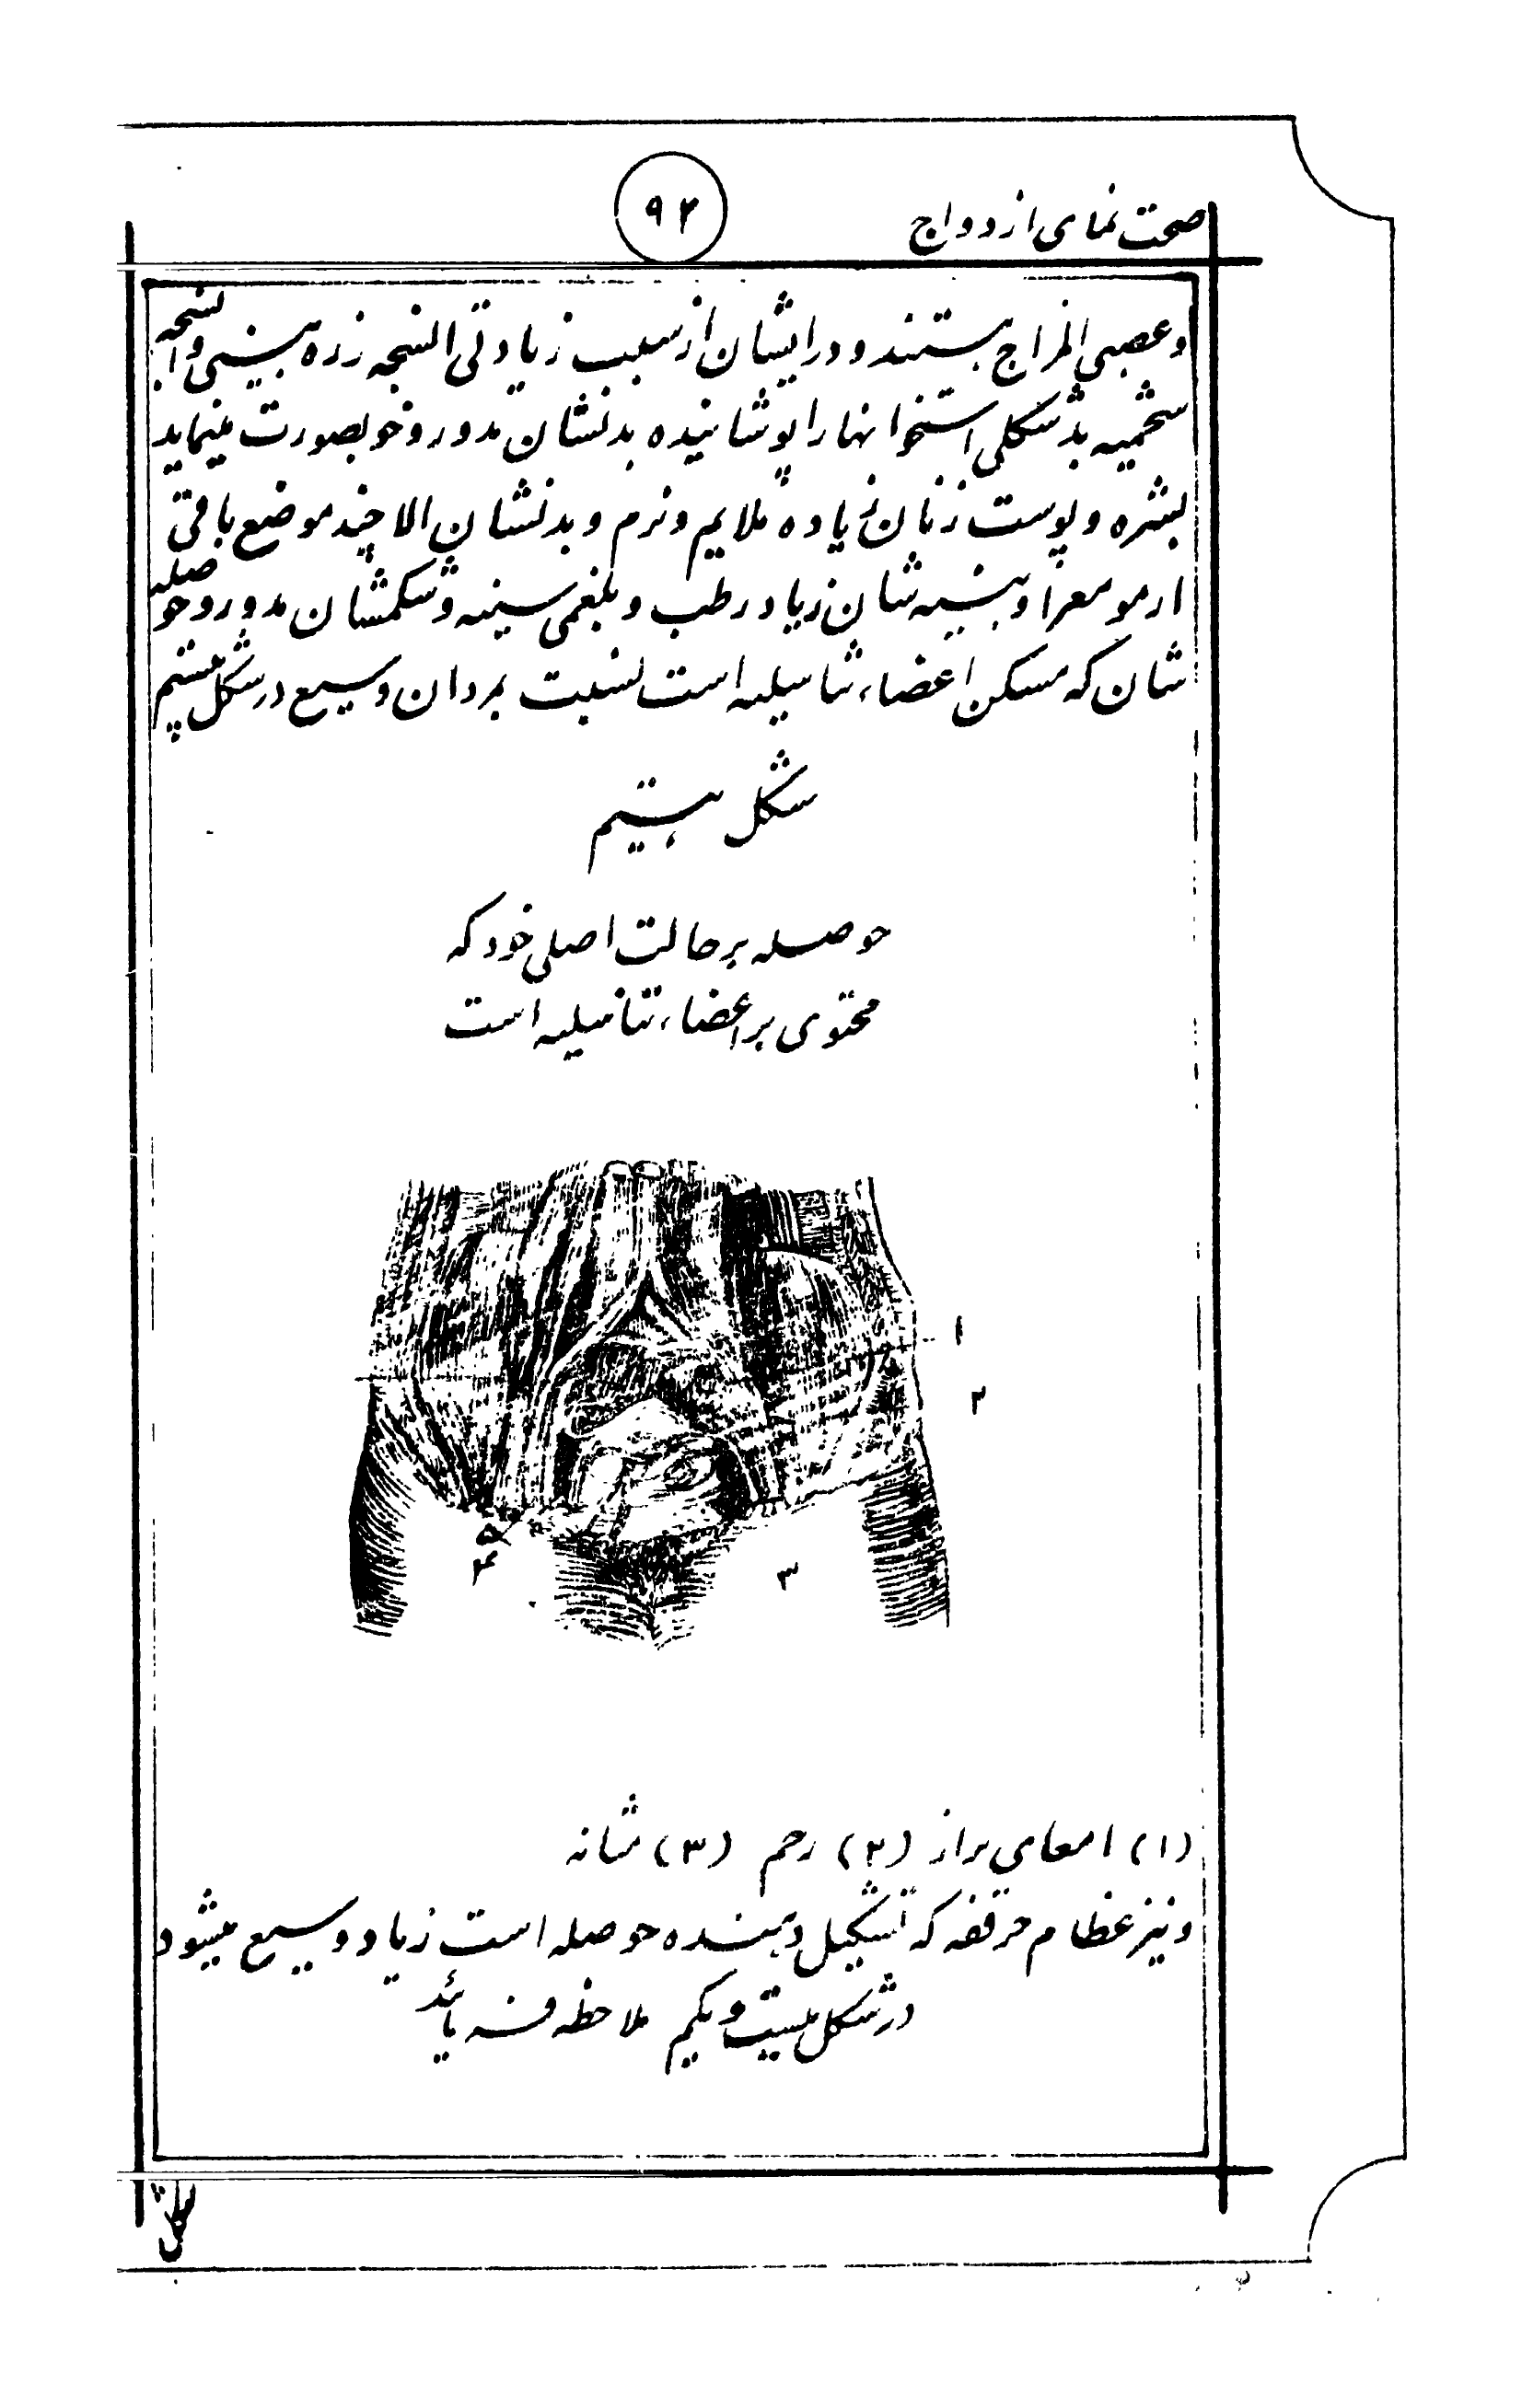 صحت نمای ازدواج
۹۲
وعصبی المزاج هستند و درایشان از سبب زیادتی انسجه زره بینی و انسجه
شحمیه بدشکلی استخوانها را پوشانیده بدنشان مدور و خوبصورت مینماید
بشره و پوست زنان زیاده ملایم و نرم و بدنشان الا چند موضع باقی
از مو معرا و بنیه شان زیاد رطب و بلغمی سینه و شکمشان مدور و حوصله
شان که مسکن اعضاء تناسلیه است نسبت بمردان وسیع در شکل بیستم
شکل بیستم
حوصله بر حالت اصلی خود که
محتوی بر اعضاء تناسلیه است
۱
۲
۳
۴
۵
(۱) امعای براز (۲) رحم (۳) مثانه
ونیز عظام حرقفه که تشکیل دهنده حوصله است زیاد وسیع میشود
در شکل بیست و یکم ملاحظه فرمائید
شکل